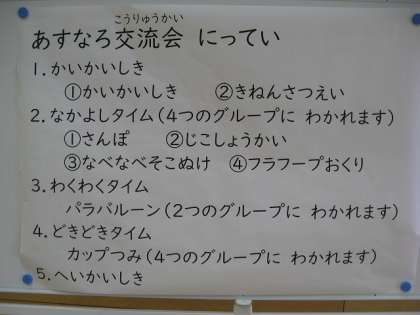 こうりゅうかい
あすなろ交流会 にってい
1.かいかいしき
①かいかいしき ②きねんさつえい
2.なかよしタイム(4つのグループに わかれます)
①さんぽ ②じこしょうかい
③なべなべそこぬけ ④フラフープおくり
3.わくわくタイム
パラバルーン(2つのグループに わかれます)
4.どきどきタイム
カップつみ(4つのグループに わかれます)
5.へいかいしき